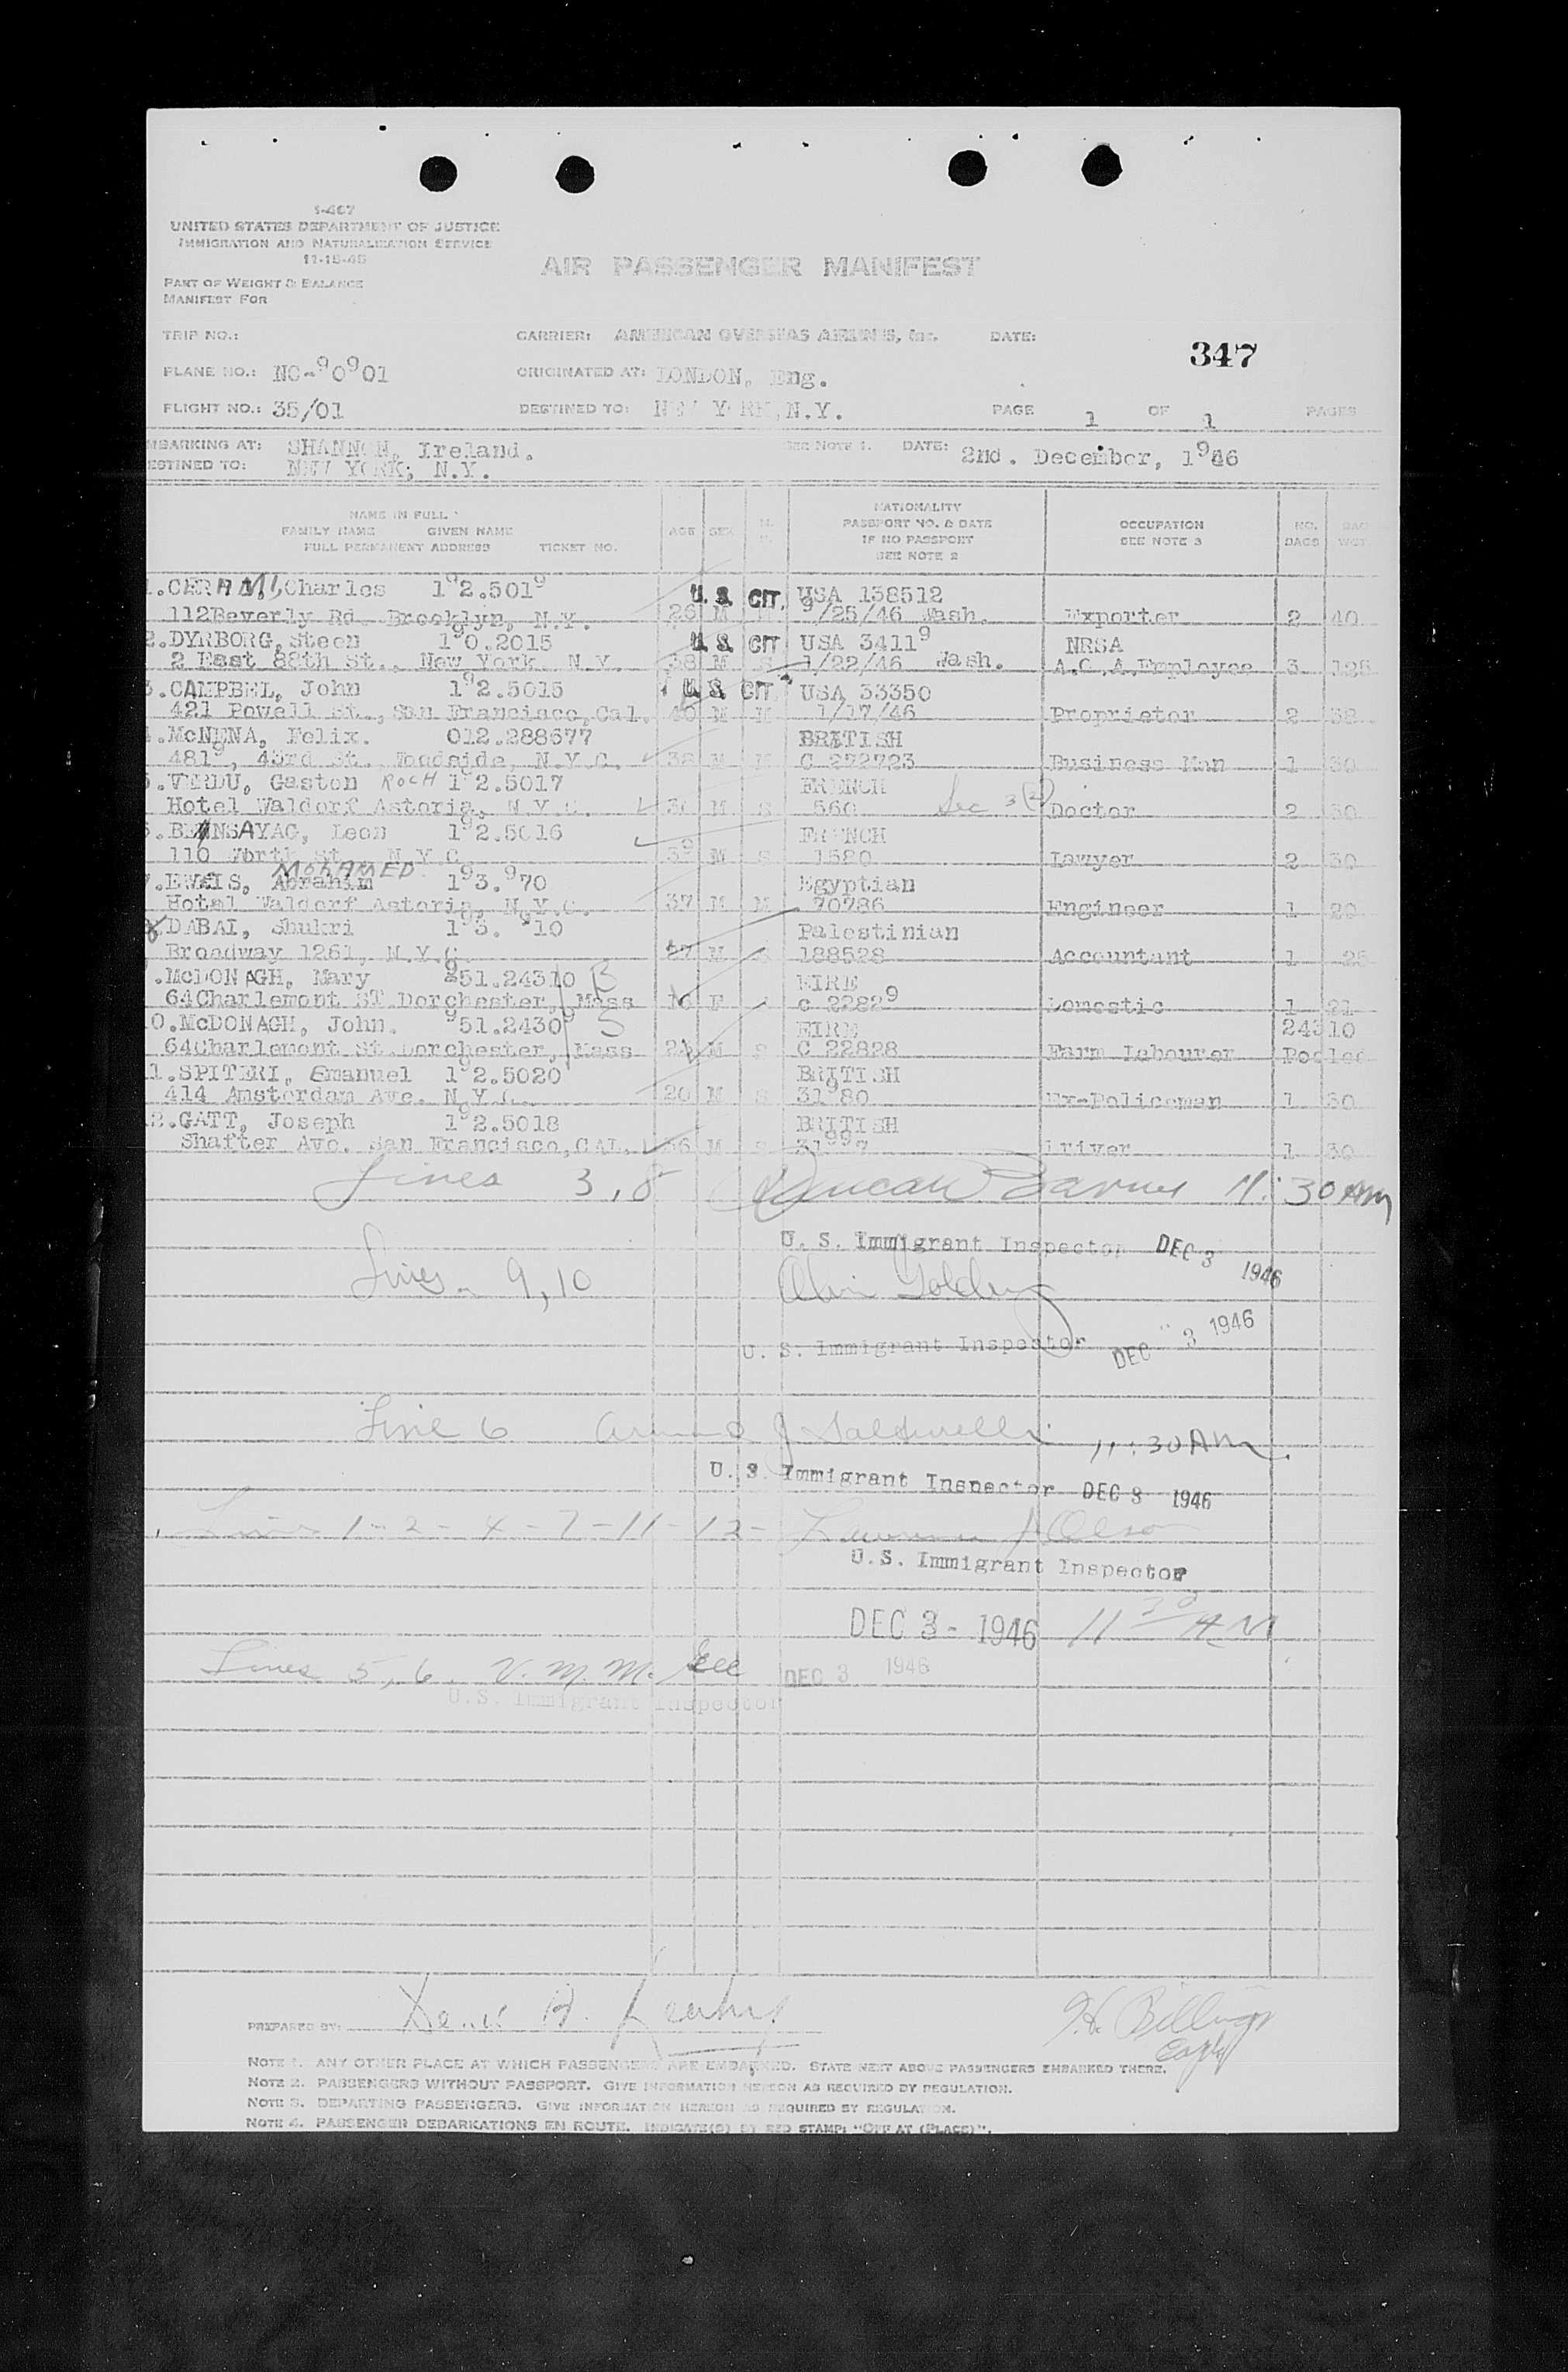 I-467
UNITED STATES DEPARTMENT OF JUSTICE
IMMIGRATION AND NATURALIZATION SERVICE
11-15-45
AIR PASSENGER MANIFEST
PART OF WEIGHT & BALANCE
MANIFEST FOR
TRIP NO.: CARRIER: AMERICAN OVERSEAS AIRLINES, Inc. DATE:
347
PLANE NO.: NC-90901 ORIGINATED AT: LONDON, Eng.
FLIGHT NO.: 35/01 DESTINED TO: NEW YORK, N.Y. PAGE 1 OF 1 PAGES
MBARKING AT: SHANNON, Ireland. SEE NOTE 1. DATE: 2nd. December, 1946
ESTINED TO: NEW YORK; N.Y.
NAME IN FULL
FAMILY NAME GIVEN NAME
FULL PERMANENT ADDRESS TICKET NO.
AGE SEX
NATIONALITY
PASSPORT NO. & DATE
IF NO PASSPORT
SEE NOTE 2
OCCUPATION
SEE NOTE 3
NO. BAGS
BAG WGT.
1.CERAMI, Charles 192.5019 U.S. CIT. USA 138512
112Beverly Rd. Brooklyn, N.Y. 26 M 9/25/46 Wash. Exporter 2 40
2.DYRBORG, Steen 190.2015 U.S. CIT USA 34119 NRSA
2 East 88th St., New York. N.Y. 38 M S 1/22/46 Wash. A.C.A.Employee 3 128
3.CAMPBEL, John 192.5015 U.S. CIT. USA 33350
421 Powell St., San Francisco, Cal. 40 M M 1/17/46 Proprietor 2 38
.McNENA, Felix. 012.288677 BRITISH
4819, 43rd St. Woodside, N.Y.C. 38 M M C 272723 Business Man 1 30
5.VERDU, Gaston ROCH 192.5017 FRENCH
Hotel Waldorf Astoria, N.Y.C. M S 560 Sec 3(2) Doctor 2 30
.BENSAYAG, Leon 192.5016 FRENCH
110 Worth St., N.Y.C. 39 M S 1520 Lawyer 2 30
MOHAMED
7.EWEIS, Abrahim 193.970 Egyptian
Hotel Waldorf Astoria, N.Y.C. 37 M M 70786 Engineer 1 20
8.DABAI, Shukri 193.910 Palestinian
Broadway 1261, N.Y.C. 27 M S 188528 Accountant 1 25
.McDONAGH, Mary 951.24310 B EIRE
64Charlemont ST.Dorchester, Mass 16 F C 22829 Domestic 1 21
0.McDONAGH, John. 951.24309 S EIRE 24310
64Charlemont St.Dorchester, Mass M S C 22828 Farm Labourer Pooled
1.SPITERI, Emanuel 192.5020 BRITISH
414 Amsterdam Ave. N.Y.C. 20 M S 31980 Ex-Policeman 1 30
2.GATT, Joseph 192.5018 BRITISH
Shafter Ave. San Francisco, CAL. 36 M S 31997 Driver 1 30
Lines 3,8 Duncan 11:30 AM
U. S. Immigrant Inspector DEC 3 1946
Lines 9,10
U. S. Immigrant Inspector DEC 3 1946
Line 6 11:30 AM
U. S. Immigrant Inspector DEC 3 1946
Lines 1-2-4-7-11-12- Lawrence J Olson
U.S. Immigrant Inspector
DEC 3- 1946 11 30 AM
Lines 5,6. V. M. M. DEC 3 1946
U.S. Immigrant Inspector
PREPARED BY:
Billings
Capt
NOTE 1. ANY OTHER PLACE AT WHICH PASSENGERS ARE EMBARKED. STATE NEXT ABOVE PASSENGERS EMBARKED THERE.
NOTE 2. PASSENGERS WITHOUT PASSPORT. GIVE INFORMATION HEREON AS REQUIRED BY REGULATION.
NOTE 3. DEPARTING PASSENGERS. GIVE INFORMATION HEREON AS REQUIRED BY REGULATION.
NOTE 4. PASSENGER DEBARKATIONS EN ROUTE. INDICATE(D) BY RED STAMP: "OFF AT (PLACE)".